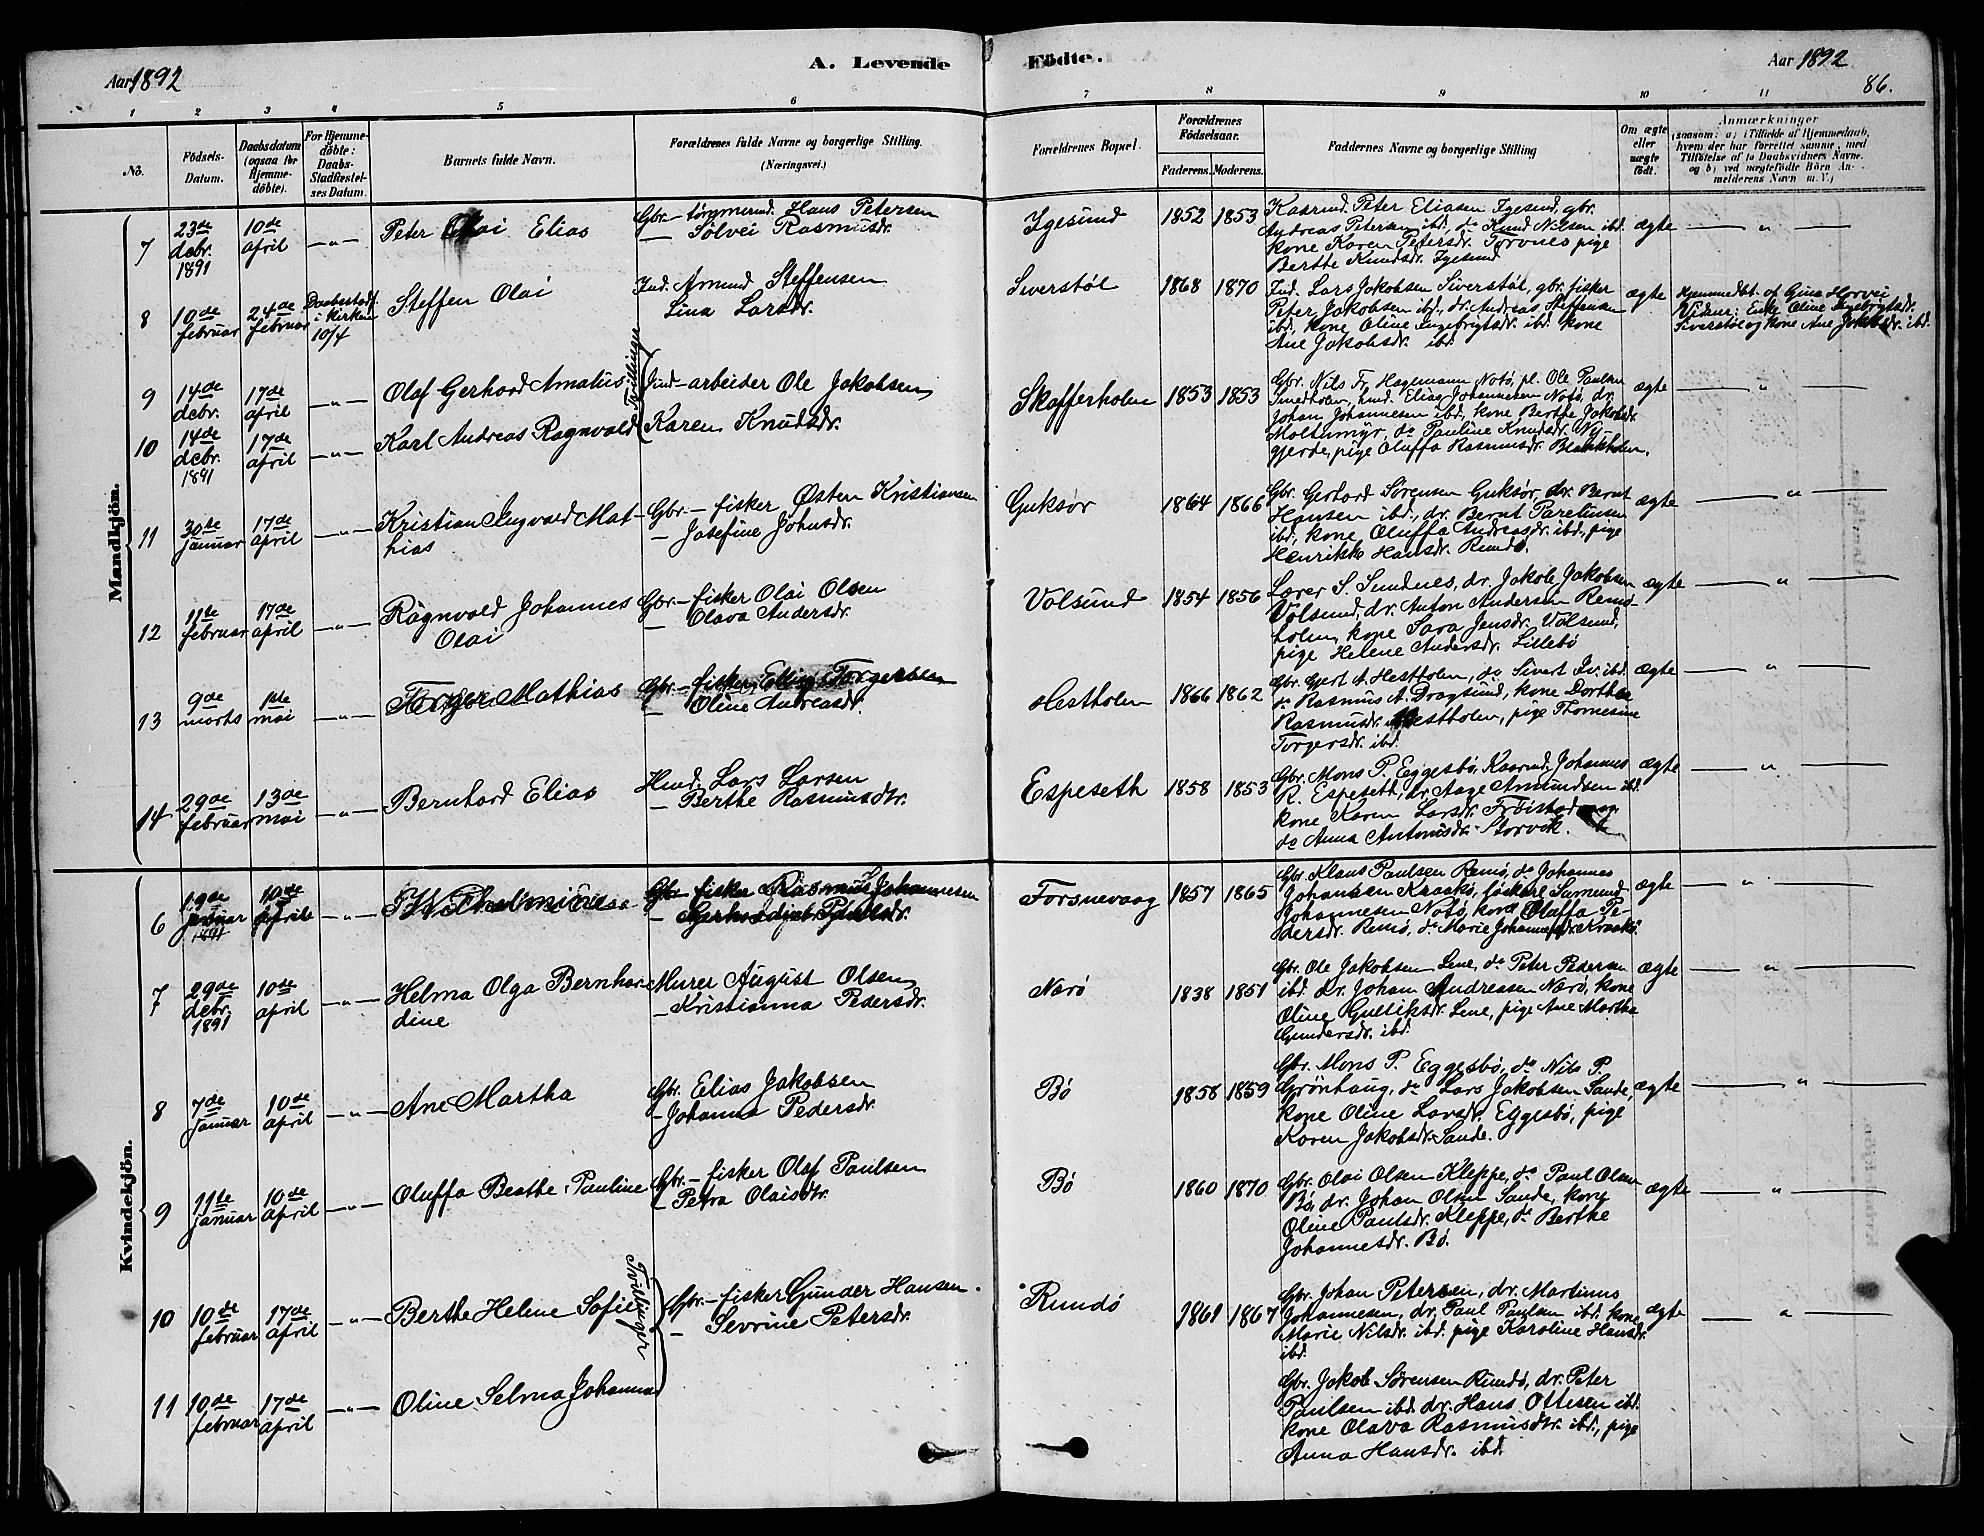 Aar 1892
A. Levende Födte.
Aar 1892
86.
1 2 3 4 5 6 7 8 9 10 11
No.
Födsels-
Datum.
Daabsdatum
(ogsaa for
Hjemme-
döbte).
For Hjemme-
döbte:
Daabs-
Stadfæstel-
ses Datum.
Barnets fulde Navn.
Forældrenes fulde Navne og borgerlige Stilling.
(Næringsvei.)
Forældrenes Bopæl.
Forældrenes
Födselsaar.
Faderens. Moderens.
Faddernes Navne og borgerlige Stilling
Om ægte
eller
uægte
födt.
Anmærkninger
(saasom: a) i Tilfælde af Hjemmedaab,
hvem der har forrettet samme, med
Tilföielse af to Daabsvidners Navne.
og b) ved uægtefödte Börn An-
melderens Navn m. V.)
Mandkjön.
7
23de
decbr.
1891
10de
april
— " —
Peter Olai Elias
Gbr. – tømmermd. Hans Petersen
— Sølvei Rasmusdr.
Igesund
1852 1853
Kaarmd. Peter Eliasen Igesund, gbr.
Andreas Petersen ibd., do Knud Nilsen ibd.
kone Karen Petersdr. Torvnes pige
Berthe Knudsdr. Igesund
ægte
— " —
8
10de
februar
24de
februar
Daabsstadf.
i kirken
10/4
Steffen Olai
Ind. Amund Steffensen
Lina Larsdr.
Siverstøl
1868 1870
Ind. Lars Jakobsen Siverstøl, gbr. fisker
Peter Jakobsen ibd., dr. Andreas Steffensen
ibd., kone Oline Ingebrigtsdr. ibd. kone
Ane Jakobsdr. ibd.
ægte
Hjemmedøbt af Gina Horvei
Vidner: Enke Oline Ingebrigtsdr.
Siverstøl og kone Ane Jakobsdr. ibd.
9
14de
decbr.
17de
april
— " —
Olaf Gerhard Amatus
Tvillinger
Ind. – arbeider Ole Jakobsen
Karen Knudsdr.
Skafferholm
1853 1853
Gbr. Nils Fr. Hagemann Notø, pl. Ole Paulsen
Smedholm, hmd. Elias Johannesen Notø, dr.
Johan Johannesen ibd., kone Berthe Jakobsdr.
Moltumyr, do Pauline Knudsdr. Ny-
gjerde, pige Oluffa Rasmusdr. Blankholm.
ægte
— " —
10
14de
decbr.
1891
17de
april
— " —
Karl Andreas Ragnvald
11
30te
januar
17de
april
— " —
Kristian Ingvald Mat-
hias
Gbr. – fisker Østen Kristiansen
— Josefine Johnsdr.
Guksør
1864 1866
Gbr. Gerhard Sørensen Guksør, dr. Bernt
Hansen ibd., dr. Bernt Paretinsen
ibd., kone Oluffa Andreasdr. ibd., pige
Henrikke Hansdr. Rundø.
ægte
— " —
12
11te
februar
17de
april
— " —
Ragnvald Johannes
Olai
Gbr. – fisker Olai Olsen
— Olava Andersdr.
Volsund
1854 1856
Lærer S. Sundnes, dr. Jakob Jakobsen
Volsund, dr. Anton Andersen Remø-
holm, kone Sara Jensdr. Volsund,
pige Helene Andersdr. Lillebø
ægte
— " —
13
9de
marts
1ste
mai
— " —
Torger Mathias
Gbr. – fisker Elling Torgersen
— Oline Andreasdr.
Hestholm
1866 1862
Gbr. Gjert A. Hestholm, do Sivert Iv. ibd.
do Rasmus A. Dragsund, kone Dorthea
Rasmusdr. Hestholm, pige Thomesine
Torgersdr. ibd.
ægte
— " —
14
29de
februar
13de
mai
— " —
Bernhard Elias
Hmd. Lars Larsen
— Berthe Rasmusdtr.
Espeseth
1858 1853
Gbr. Mons P. Eggesbø, Kaarmd. Johannes
R. Espeseth, dr. Aage Amundsen ibd.
kone Karen Larsdr. Frøistad
do Anna Antonisdr. Storvik.
ægte
— " —
Kvindekjön.
6
19de
januar
10de
april
— " —
Wilhelmine
Gbr. fisker Rasmus Johannesen
— Paulsdr.
Forsnevaag
1857 1865
Gbr. Klaus Paulsen Remø, do Johannes
Johansen Kraakø, føskars Samund
Johannesen Notø, kone Oluffa Pe-
dersdr. Remø, do Marie Johannesdr. Kraakø.
ægte
— " —
7
29de
decbr.
1891
10de
april
— " —
Helma Olga Bernhar-
dine
Murer August Olsen
— Kristianna Pedersdr.
Nærø
1838 1851
Gbr. Ole Jakobsen Lene, do Peter Pedersen
ibd. dr. Johan Andreasen Nærø, kone
Oline Gultiksdr. Lene, pige Ane Martha
Gundersdr. ibd.
ægte
— " —
8
7de
januar
10de
april
— " —
Ane Martha
Gbr. Elias Jakobsen
— Johanna Pedersdr.
Bø
1858 1859
Gbr. Mons P. Eggesbø, do Nils P.
Grønhaug, do Lars Jakobsen Sande,
kone Oline Larsdr. Eggesbø, pige
Karen Jakobsdr. Sande.
ægte
— " —
9
11te
januar
10de
april
— " —
Oluffa Beathe Pauline
Gbr. – fisker Olaf Paulsen
— Petra Olaisdtr.
Bø
1860 1870
Gbr. Olai Olsen Kleppe, do Paul Olsen
Bø, dr. Johan Olsen Sande, kone
Oline Paulsdr. Kleppe, do Berthe
Johannesdr. Bø.
ægte
— " —
10
10de
februar
17de
april
— " —
Berthe Helene Sofie
Tvillinger
Gbr. – fisker Gunder Hansen.
— Sevrine Petersdr.
Rundø
1861 1867
Gbr. Johan Petersen, dr. Martinus
Johannesen, dr. Paul Paulsen ibd. kone
Marie Nilsdr. ibd. pige Karoline Hansdr.
ibd.
ægte
— " —
11
10de
februar
17de
april
— " —
Oline Selma Johanna
Gbr. Jakob Sørensen Rundø, dr. Peter
Paulsen ibd. dr. Hans Ottesen ibd.
kone Olava Rasmusdtr. ibd., pige
Anna Hansdr. ibd.